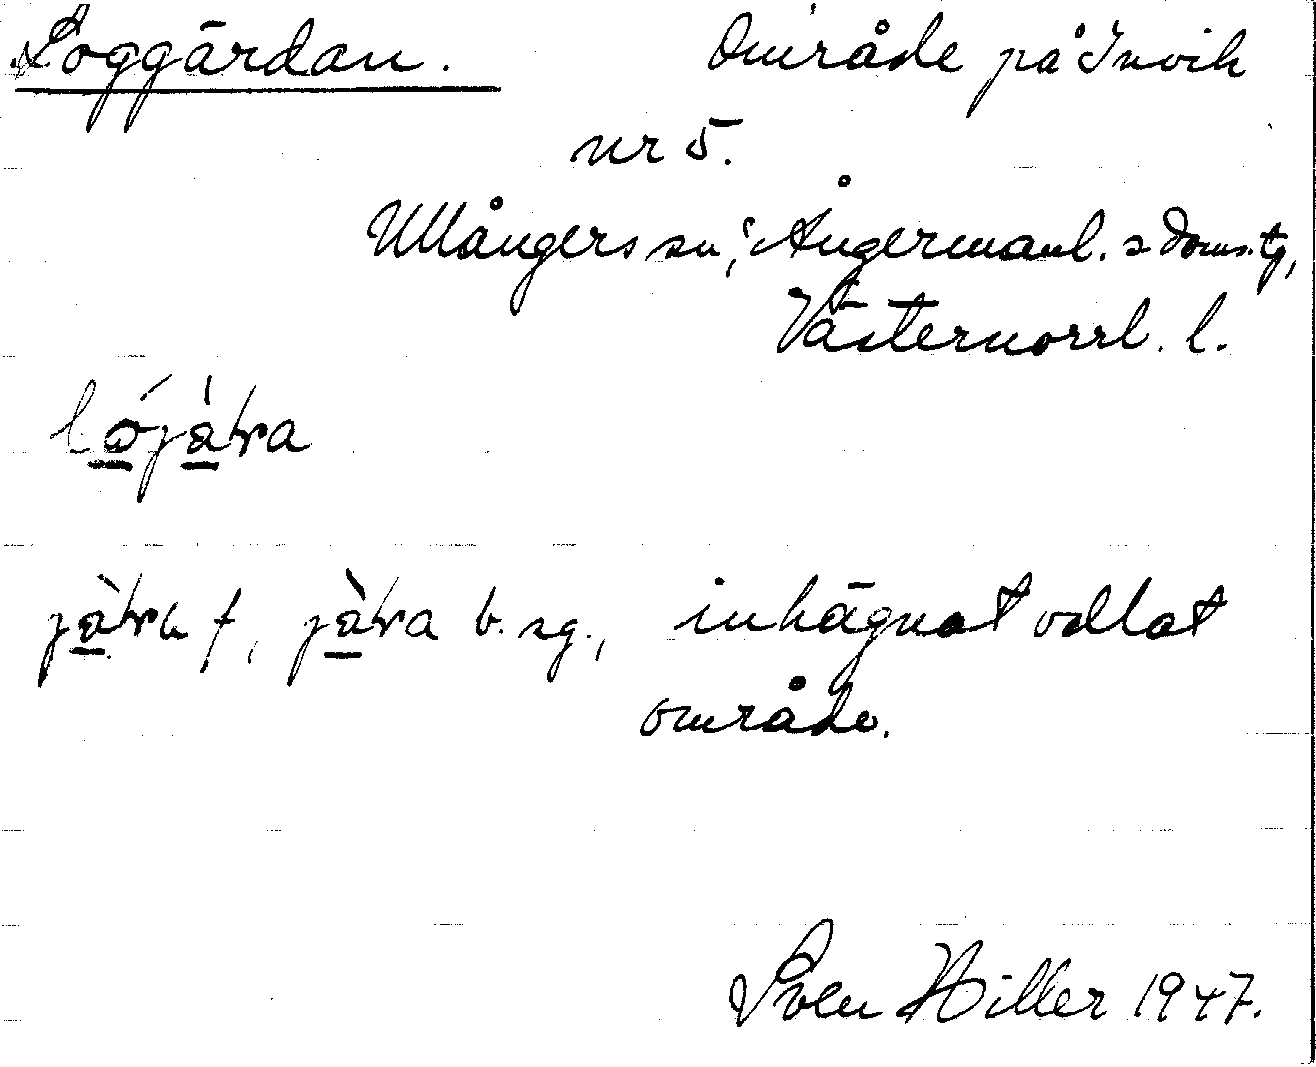 Loggärdan. Område på Invik
nr 5.
Ullångers sn, Ångermanl. s doms.tg,
Västernorrl. l.
f, b. sg., inhägnat odlat
område.
Sven Hiller 1947.